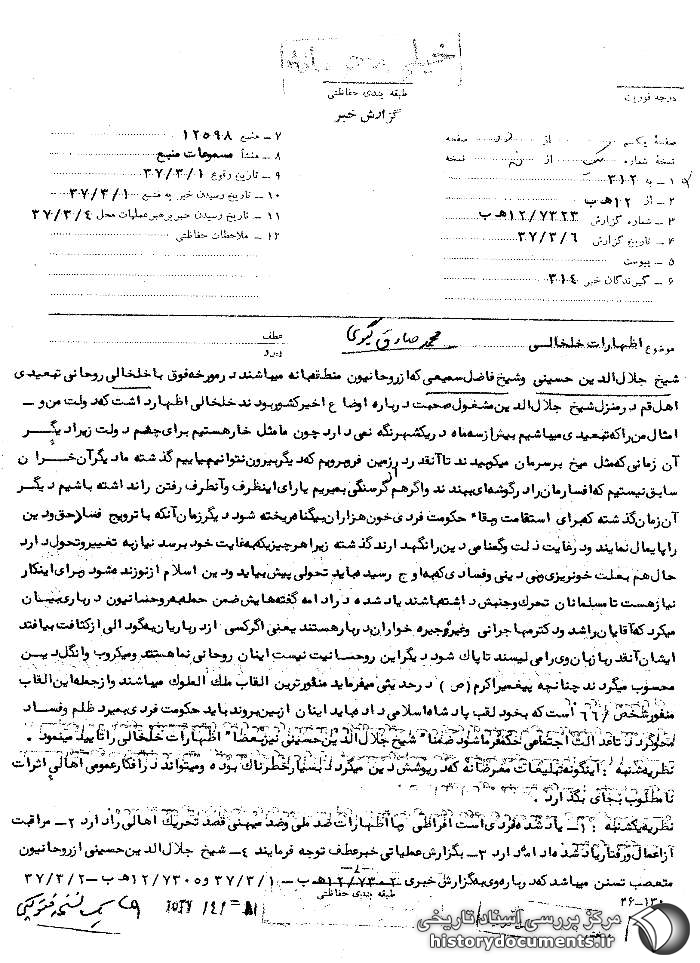 خیلی محرمانه
طبقه بندی حفاظتی
گزارش خبر
درجه فوریت
صفحه یکم از صفحه
نسخه شماره از نسخه
۱ ـ به ۳۱۲
۲ ـ از ۱۲ هـ ب
۳ ـ شماره گزارش ۱۲/۷۳۲۳ هـ ب
۴ ـ تاریخ گزارش ۳۷/۳/۶
۵ ـ پیوست
۶ ـ گیرندگان خبر ۳۱۴
۷ ـ منبع ۱۲۵۹۸
۸ ـ منشأ مسموعات منبع
۹ ـ تاریخ وقوع ۳۷/۳/۱
۱۰ ـ تاریخ رسیدن خبر به منبع ۳۷/۳/۱
۱۱ ـ تاریخ رسیدن خبر به رهبر عملیات محل ۳۷/۳/۴
۱۲ ـ ملاحظات حفاظتی
موضوع اظهارات خلخالی محمد صادق گیوی
عطف
پیرو
شیخ جلال الدین حسینی وشیخ فاضل سمیعی که از روحانیون منطقه بانه میباشند در مورخه فوق با خلخالی روحانی تبعیدی
اهل قم در منزل شیخ جلال الدین مشغول صحبت درباره اوضاع اخیر کشور بودند خلخالی اظهار داشت که دولت من و ـ
امثال من را که تبعیدی میباشیم بیش از سه ماه در یک شهر نگه نمی دارد چون ما مثل خار هستیم برای چشم دولت زیرا دیگر
آن زمانی که مثل میخ بر سرمان میکوبیدند تا آنقدر در زمین فرو برویم که دیگر بیرون نتوانیم بیاییم گذشته ما دیگر آن خران
سابق نیستیم که افسارمان را در گوشه ای ببندند واگر هم از گرسنگی بمیریم یارای اینطرف وآنطرف رفتن را نداشته باشیم دیگر
آن زمان گذشته که برای استقامت وبقاء حکومت فردی خون هزاران بیگناه ریخته شود دیگر زمان آنکه با ترویج فساد حق ودین
را پایمال نمایند ودر غایت ذلت وگمنامی دین را نگهدارند گذشته زیرا هر چیزیکه به غایت خود برسد نیاز به تغییر وتحول دارد
حال هم بعلت خونریزی وبی دینی وفسادی که به اوج رسیده باید تحولی پیش بیاید ودین اسلام از نو زنده شود وبرای اینکار
نیاز هست تا مسلمانان تحرک وجنبش داشته باشند یاد شده در ادامه گفته هایش ضمن حمله به روحانیون درباری بیان
میکرد که آقایان راشد ودکتر مهاجرانی وغیره جیره خواران دربار هستند یعنی اگر کسی از درباریان به گودالی از کثافت بیافتد
ایشان آنقدر با زبان وی را می لیسند تا پاک شود دیگر این روحانیت نیست اینان روحانی نما هستند ومیکروب وانگل دین
محسوب میگردند چنانچه پیغمبر اکرم (ص) در حدیثی میفرماید منفورترین القاب ملک الملوک میباشند واز جمله این القاب
منفور شخص ۶۶ است که بخود لقب پادشاه اسلامی داده باید اینان از بین بروند باید حکومت فردی بمیرد ظلم وفساد
محو گردد تا عدالت اجتماعی حکمفرما شود ضمنا" شیخ جلال الدین حسینی نیز بعضا" اظهارات خلخالی را تأیید مینمود .
نظریه شنبه : اینگونه تبلیغات مغرضانه که در پوشش دین میگردد بسیار خطرناک بوده ومیتواند در افکار عمومی اهالی اثرات
نامطلوب بجای بگذارد .
نظریه یکشنبه : ۱ـ یاد شده فردی است افراطی وبا اظهارات ضد ملی وضد میهنی قصد تحریک اهالی را دارد ۲ـ مراقبت
از اعمال ورفتار یاد شده ادامه دارد ۳ـ بگزارش عملیاتی خبر عطف توجه فرمایند ۴ـ شیخ جلال الدین حسینی از روحانیون
متعصب تسنن میباشد که درباره وی به گزارش خبری ۱۲/۷۳۰۲ هـ ب ـ ۳۷/۳/۱ و ۱۲/۷۳۰۵ هـ ب ـ ۳۷/۳/۲
طبقه بندی حفاظتی
۳۶-۱۳
مرکز بررسی اسناد تاریخی
historydocuments.ir